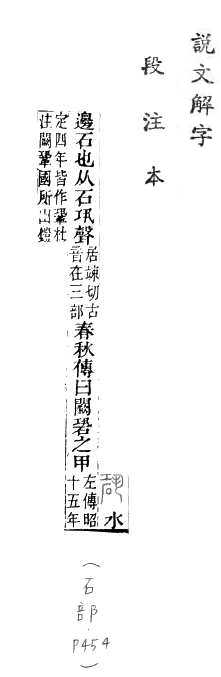 説文解字
段注本
水
邊石也从石巩聲居竦切古音在三部春秋傳曰闕䂬之甲左傳昭十五年
定四年皆作鞏杜注闕鞏國所出鎧
(石部.P454)